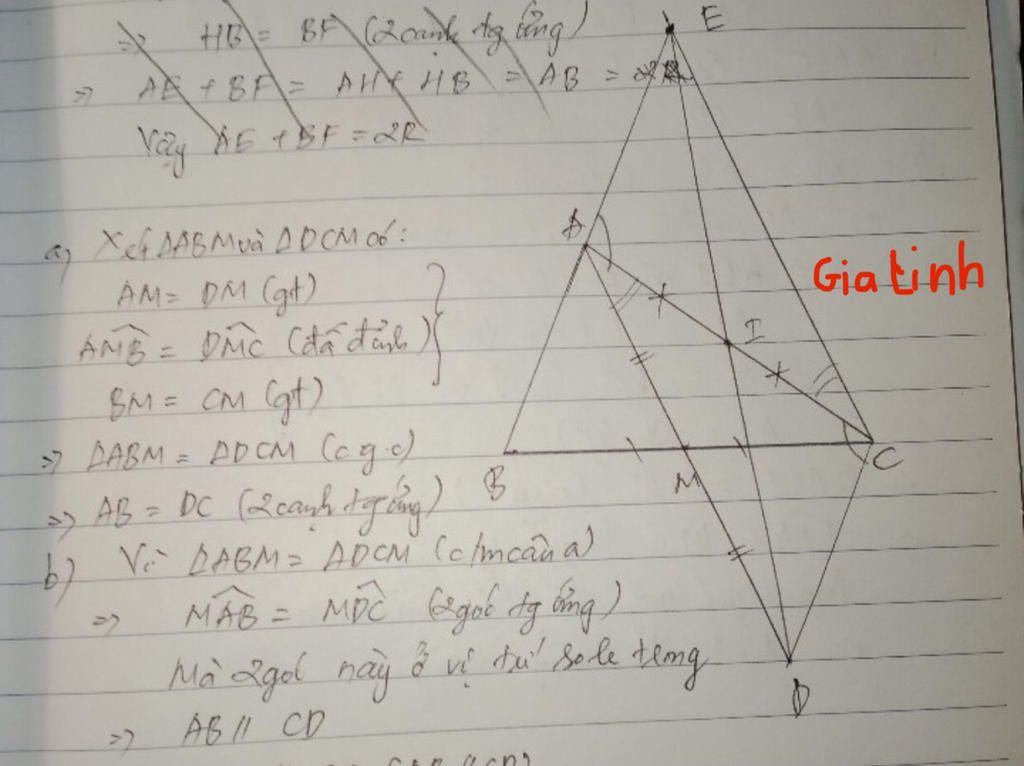 => HB = BF (2 cạnh tg ứng)
=> AE + BF = AH + HB = AB = 2R
Vậy AE + BF = 2R
a) Xét ΔABM và ΔDCM có:
AM = DM (gt)
AMB = DMC (đđ đỉnh)
BM = CM (gt)
=> ΔABM = ΔDCM (c.g.c)
=> AB = DC (2 cạnh tg ứng)
b) Vì ΔABM = ΔDCM (c/m câu a)
=> MAB = MDC (2 góc tg ứng)
Mà 2 góc này ở vị trí so le trong
=> AB // CD
E
A
Gia tinh
I
B
M
C
D